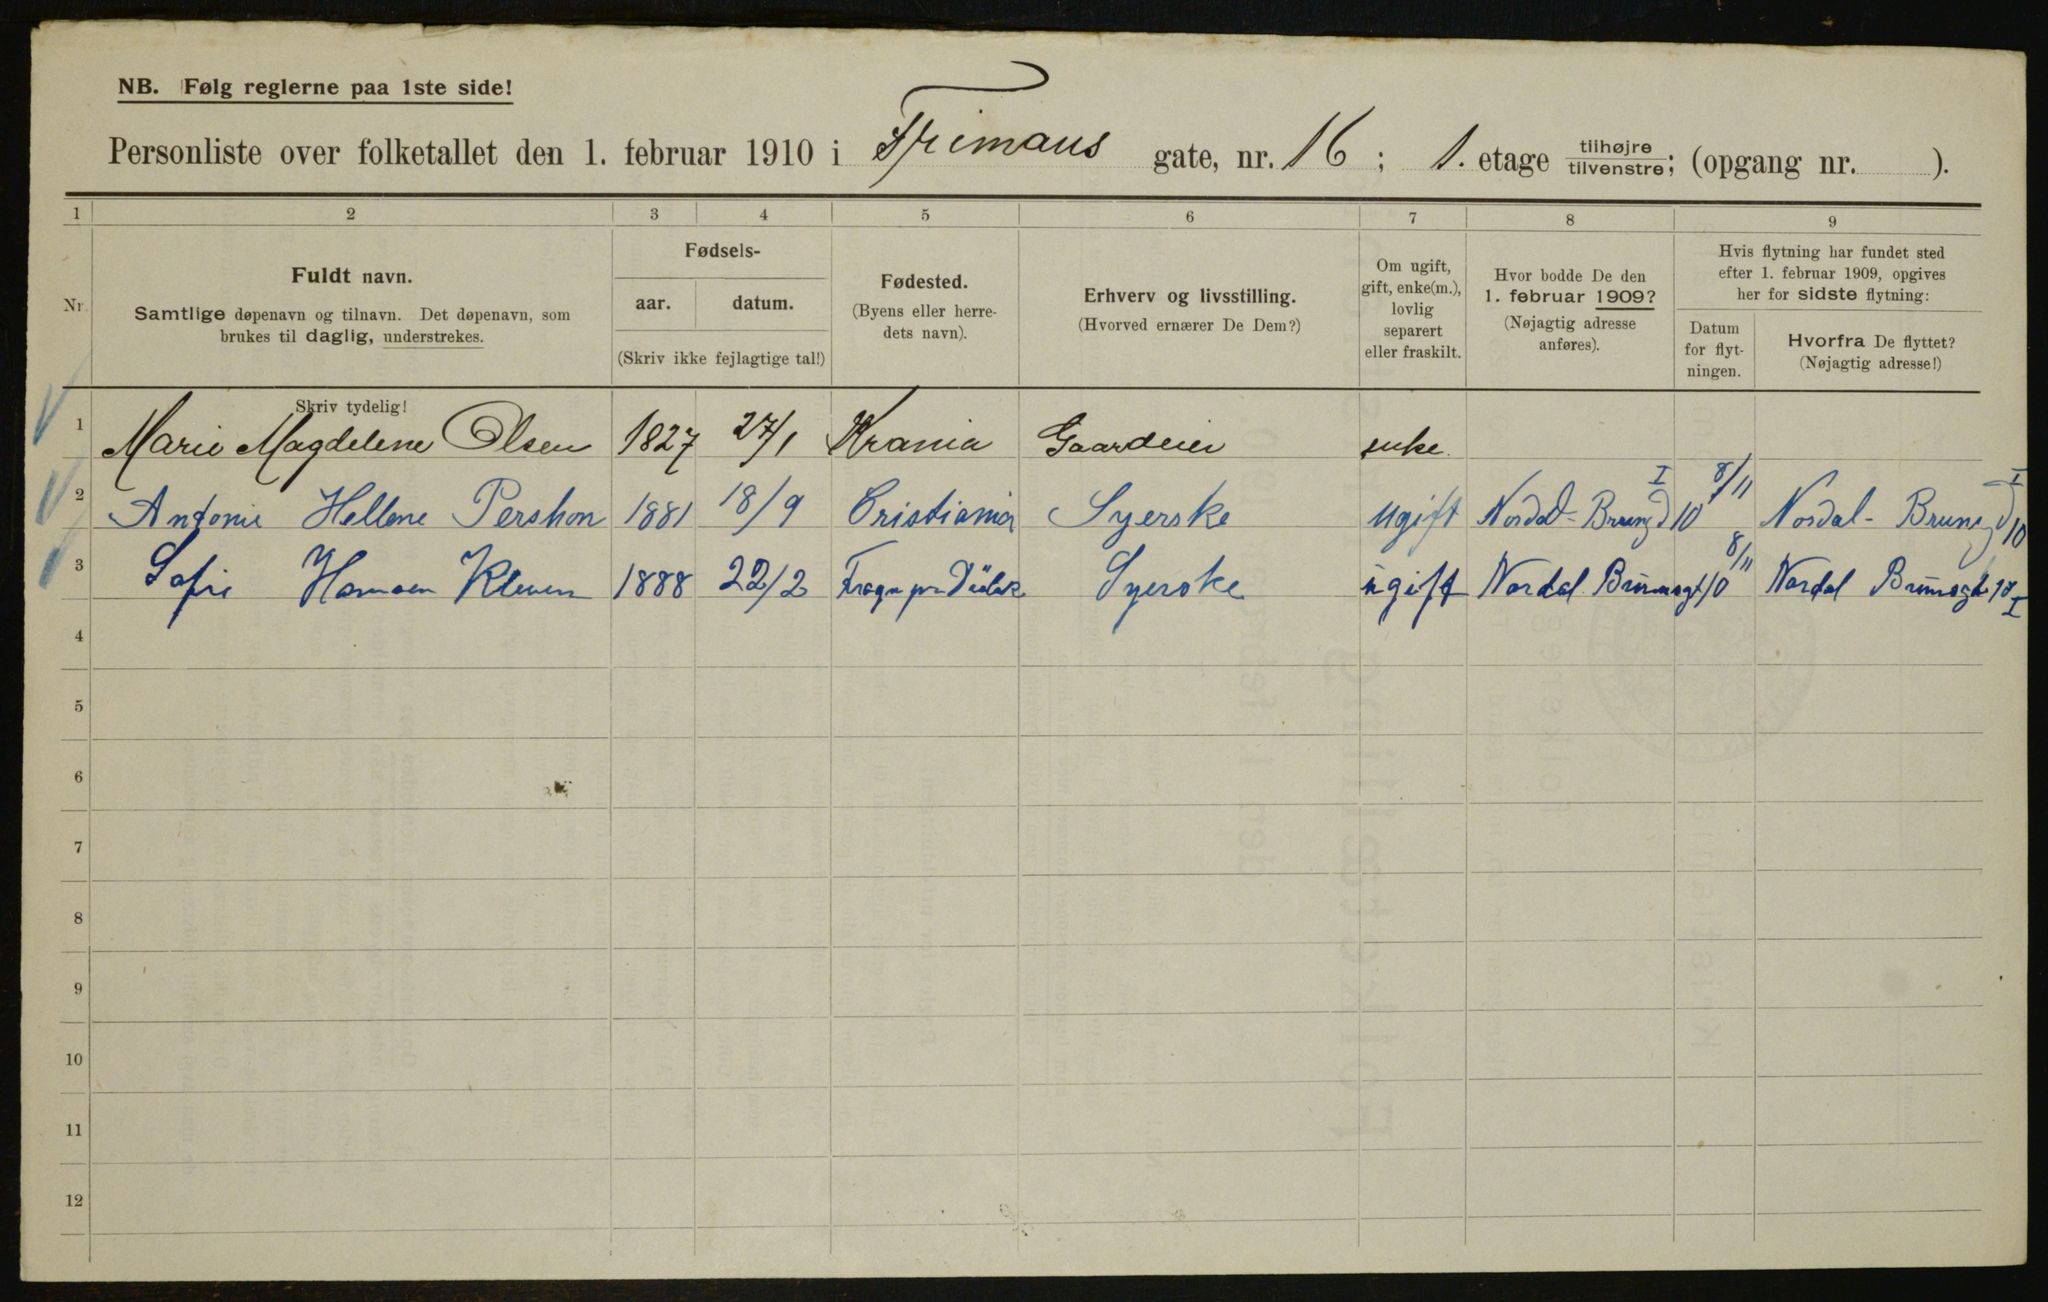 NB. Følg reglerne paa 1ste side!
Personliste over folketallet den 1. februar 1910 i Frimans gate, nr. 16 ; 1. etage tilhøjre tilvenstre; (opgang nr. ).
1 2 3 4 5 6 7 8 9
Nr.
Fuldt navn.
Samtlige døpenavn og tilnavn. Det døpenavn, som
brukes til daglig, understrekes.
Fødsels-
aar. datum.
(Skriv ikke fejlagtige tal!)
Fødested.
(Byens eller herre-
dets navn).
Erhverv og livsstilling.
(Hvorved ernærer De Dem?)
Om ugift,
gift, enke(m.),
lovlig
separert
eller fraskilt.
Hvor bodde De den
1. februar 1909?
(Nøjagtig adresse
anføres).
Hvis flytning har fundet sted
efter 1. februar 1909, opgives
her for sidste flytning:
Datum
for flyt-
ningen.
Hvorfra De flyttet?
(Nøjagtig adresse!)
Skriv tydelig!
1 Marie Magdelene Olsen 1827 27/1 Krania Gaardeier enke.
2 Antonie Hellene Pershon 1881 18/9 Cristiania Syerske ugift Nordal-Brung 10 I 8/11 Nordal-Brung 10 I
3 Sofie Hansen Kleven 1888 22/2 Frogn Syerske ugift Nordal Brunsgt 10 8/11 Nordal Brunsgt 10 I
4
5
6
7
8
9
10
11
12